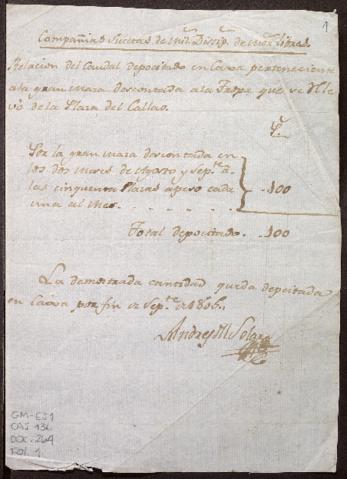 1
Compañias Sueltas de Mil.s Discip. de Mor.s Libres.
Relacion del Caudal depocitado en Caxa perteneciente
a la gran masa descontada a la Tropa que se rele
vó de la Plaza del Callao.
Por la gran masa descontada en
los dos meses de Agosto y Sep.te á
las cinquenta Plazas á peso cada
una al mes. . . . . . . 100
Total depocitado. . 100
La demostrada cantidad queda depocitada
en Caxa por fin de Sep.te de 1806.
Andres M. Solar
GM-E51
CAJ 136
DOC. 264
FOL. 1